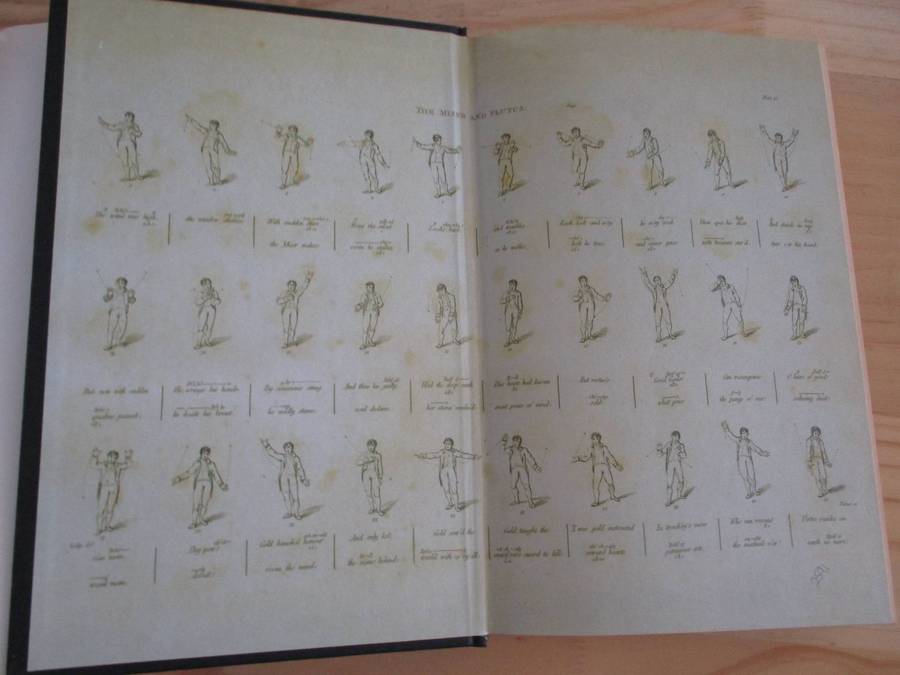 THE MISER AND PLUTUS.
The wind was high,
the window shakes;
With sudden start
the Miser wakes;
Along the silent
room he stalks;
Looks back,
and trembles
as he walks.
Each lock and ev'ry
bolt he tries,
in ev'ry creek
and corner pries;
Then opes the chest
with treasure stor'd,
But now with sudden
qualms possest,
He wrings his hands,
he beats his breast.
By conscience stung
he wildly stares;
And thus his guilty
soul declares.
Had the deep earth
her stores confin'd,
This heart had known
sweet peace of mind.
But virtue's
sold.
Good Gods!
what price
Can recompense
the pangs of vice!
O bane of good!
seducing cheat!
Can man,
weak man,
thy power
defeat?
Gold banish'd honour
from the mind,
And only left
the name behind;
Gold sow'd the
world with ev'ry ill;
Gold taught the
murd'rer's sword to kill:
'Twas gold instructed
coward hearts
In treach'ry's more
pernicious arts.
Who can recount
the mischiefs o'er?
Virtue resides on
earth no more!